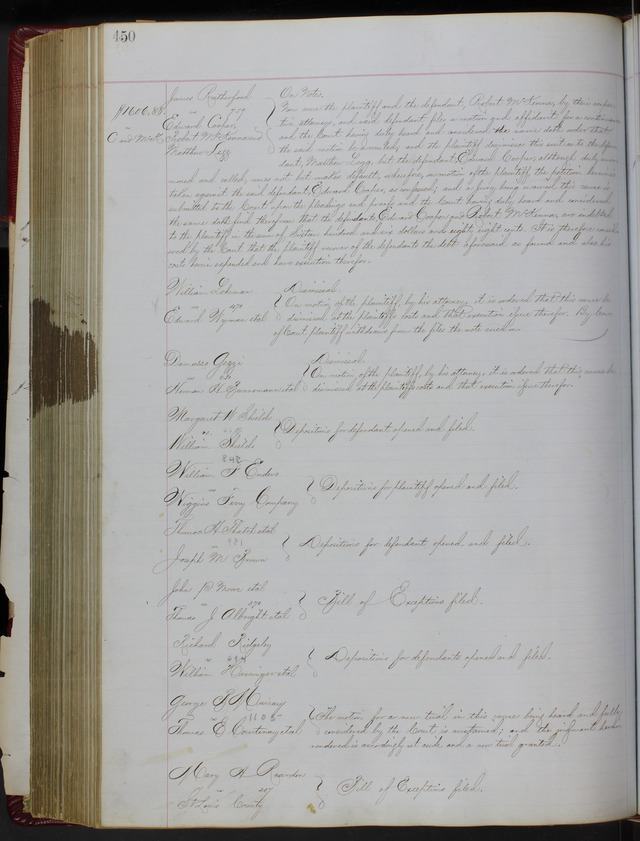 450
James Rutherford
779
Edward Cooper,
Robert McKinnous
Matthew Legg
$1606.88.
On Note.
Now come the plaintiff and the defendant, Robert McKinnous, by their respec-
tive attorneys, and said defendant files a motion and affidavit for a continuance
and the Court having duly heard and considered the same doth order that
the said motion be overruled, and the plaintiff dismisses this suit as to the defen-
dant, Matthew Legg, but the defendant Edward Cooper, although duly sum-
moned and called, comes not but makes default; wherefore, on motion of the plaintiff the petition herein is
taken against the said defendant, Edward Cooper, as confessed; and a jury being waived this cause is
submitted to the Court upon the pleadings and proofs and the Court having duly heard and considered
the same doth find therefrom that the defendants Edward Cooper and Robert McKinnous, are indebted
to the plaintiff in the sum of Sixteen hundred and six dollars and eighty eight cents. It is therefore consid-
ered by the Court that the plaintiff recover of the defendants the debt aforesaid so found and also his
costs herein expended and have execution therefor.
William Lohman
Edward Wyman et al
Dismissal
On motion of the plaintiff, by his attorney, it is ordered that this cause be
dismissed at the plaintiff's costs and that execution issue therefor. By leave
of Court plaintiff withdraws from the files the note sued on
Herman et al
Dismissal
On motion of the plaintiff by his attorney, it is ordered that this cause be
dismissed at the plaintiff's costs and that execution issue therefor.
Margaret W Shields
William Shields
Depositions for defendant opened and filed.
William F Enders
848
Wiggins Ferry Company
Depositions for plaintiff opened and filed.
Thomas H et al
981
Joseph M Brown
Depositions for defendant opened and filed.
John Moore et al
Thomas J Albright et al
Bill of Exceptions filed.
Richard Ridgeley
William et al
Depositions for defendants opened and filed.
George R Murray
1105
Thomas E Courtenay et al
The motion for a new trial in this cause being heard and fully
considered by the Court, is sustained; and the judgment herein
rendered is accordingly set aside and a new trial granted.
Mary A Reardon
207
St Louis County
Bill of Exceptions filed.